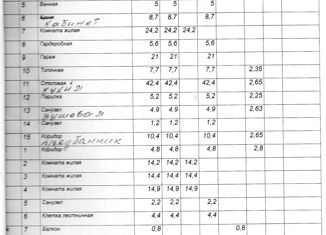 5 Ванная 5 5 5
6 Кухня 8,7 8,7 8,7
Кабинет
7 Комната жилая 24,2 24,2 24,2
8 Гардеробная 5,6 5,6 5,6
9 Гараж 21 21 21
10 Топочная 7,7 7,7 7,7 2,35
11 Столовая 42,4 42,4 42,4 2,65
кухня
12 Парилка 5,2 5,2 5,2 2,25
13 Санузел 4,9 4,9 4,9 2,63
Душевая
14 Санузел 1,2 1,2 1,2
15 Коридор 10,4 10,4 10,4 2,65
Предбанник
1 Коридор 4,8 4,8 4,8 2,8
2 Комната жилая 14,2 14,2 14,2
3 Комната жилая 14,4 14,4 14,4
4 Комната жилая 14,9 14,9 14,9
5 Санузел 2,2 2,2 2,2
6 Клетка лестничная 4,4 4,4 4,4
7 Балкон 0,8 0,8